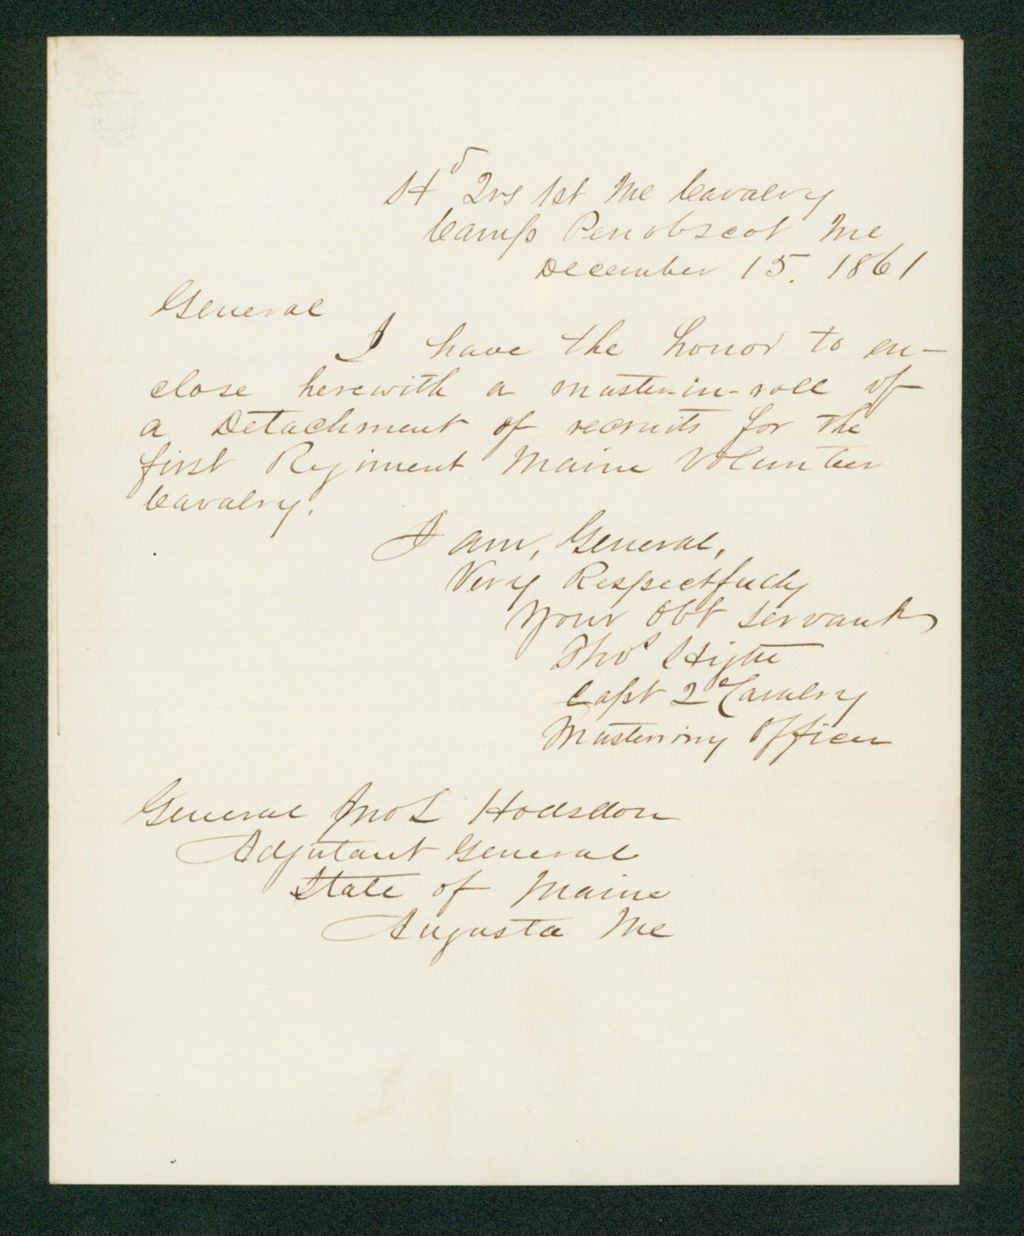 Hd Qrs 1st Me Cavalry
Camp Penobscot Me
December 15. 1861
General
I have the honor to en-
close herewith a muster-in-roll of
a Detachment of recruits for the
first Regiment Maine Volunteer
Cavalry.
I am, General,
Very Respectfully
Your Obt Servant
Thos Hight
Capt 2d Cavalry
Mustering Officer
General Jno L Hodsdon
Adjutant General
State of Maine
Augusta Me